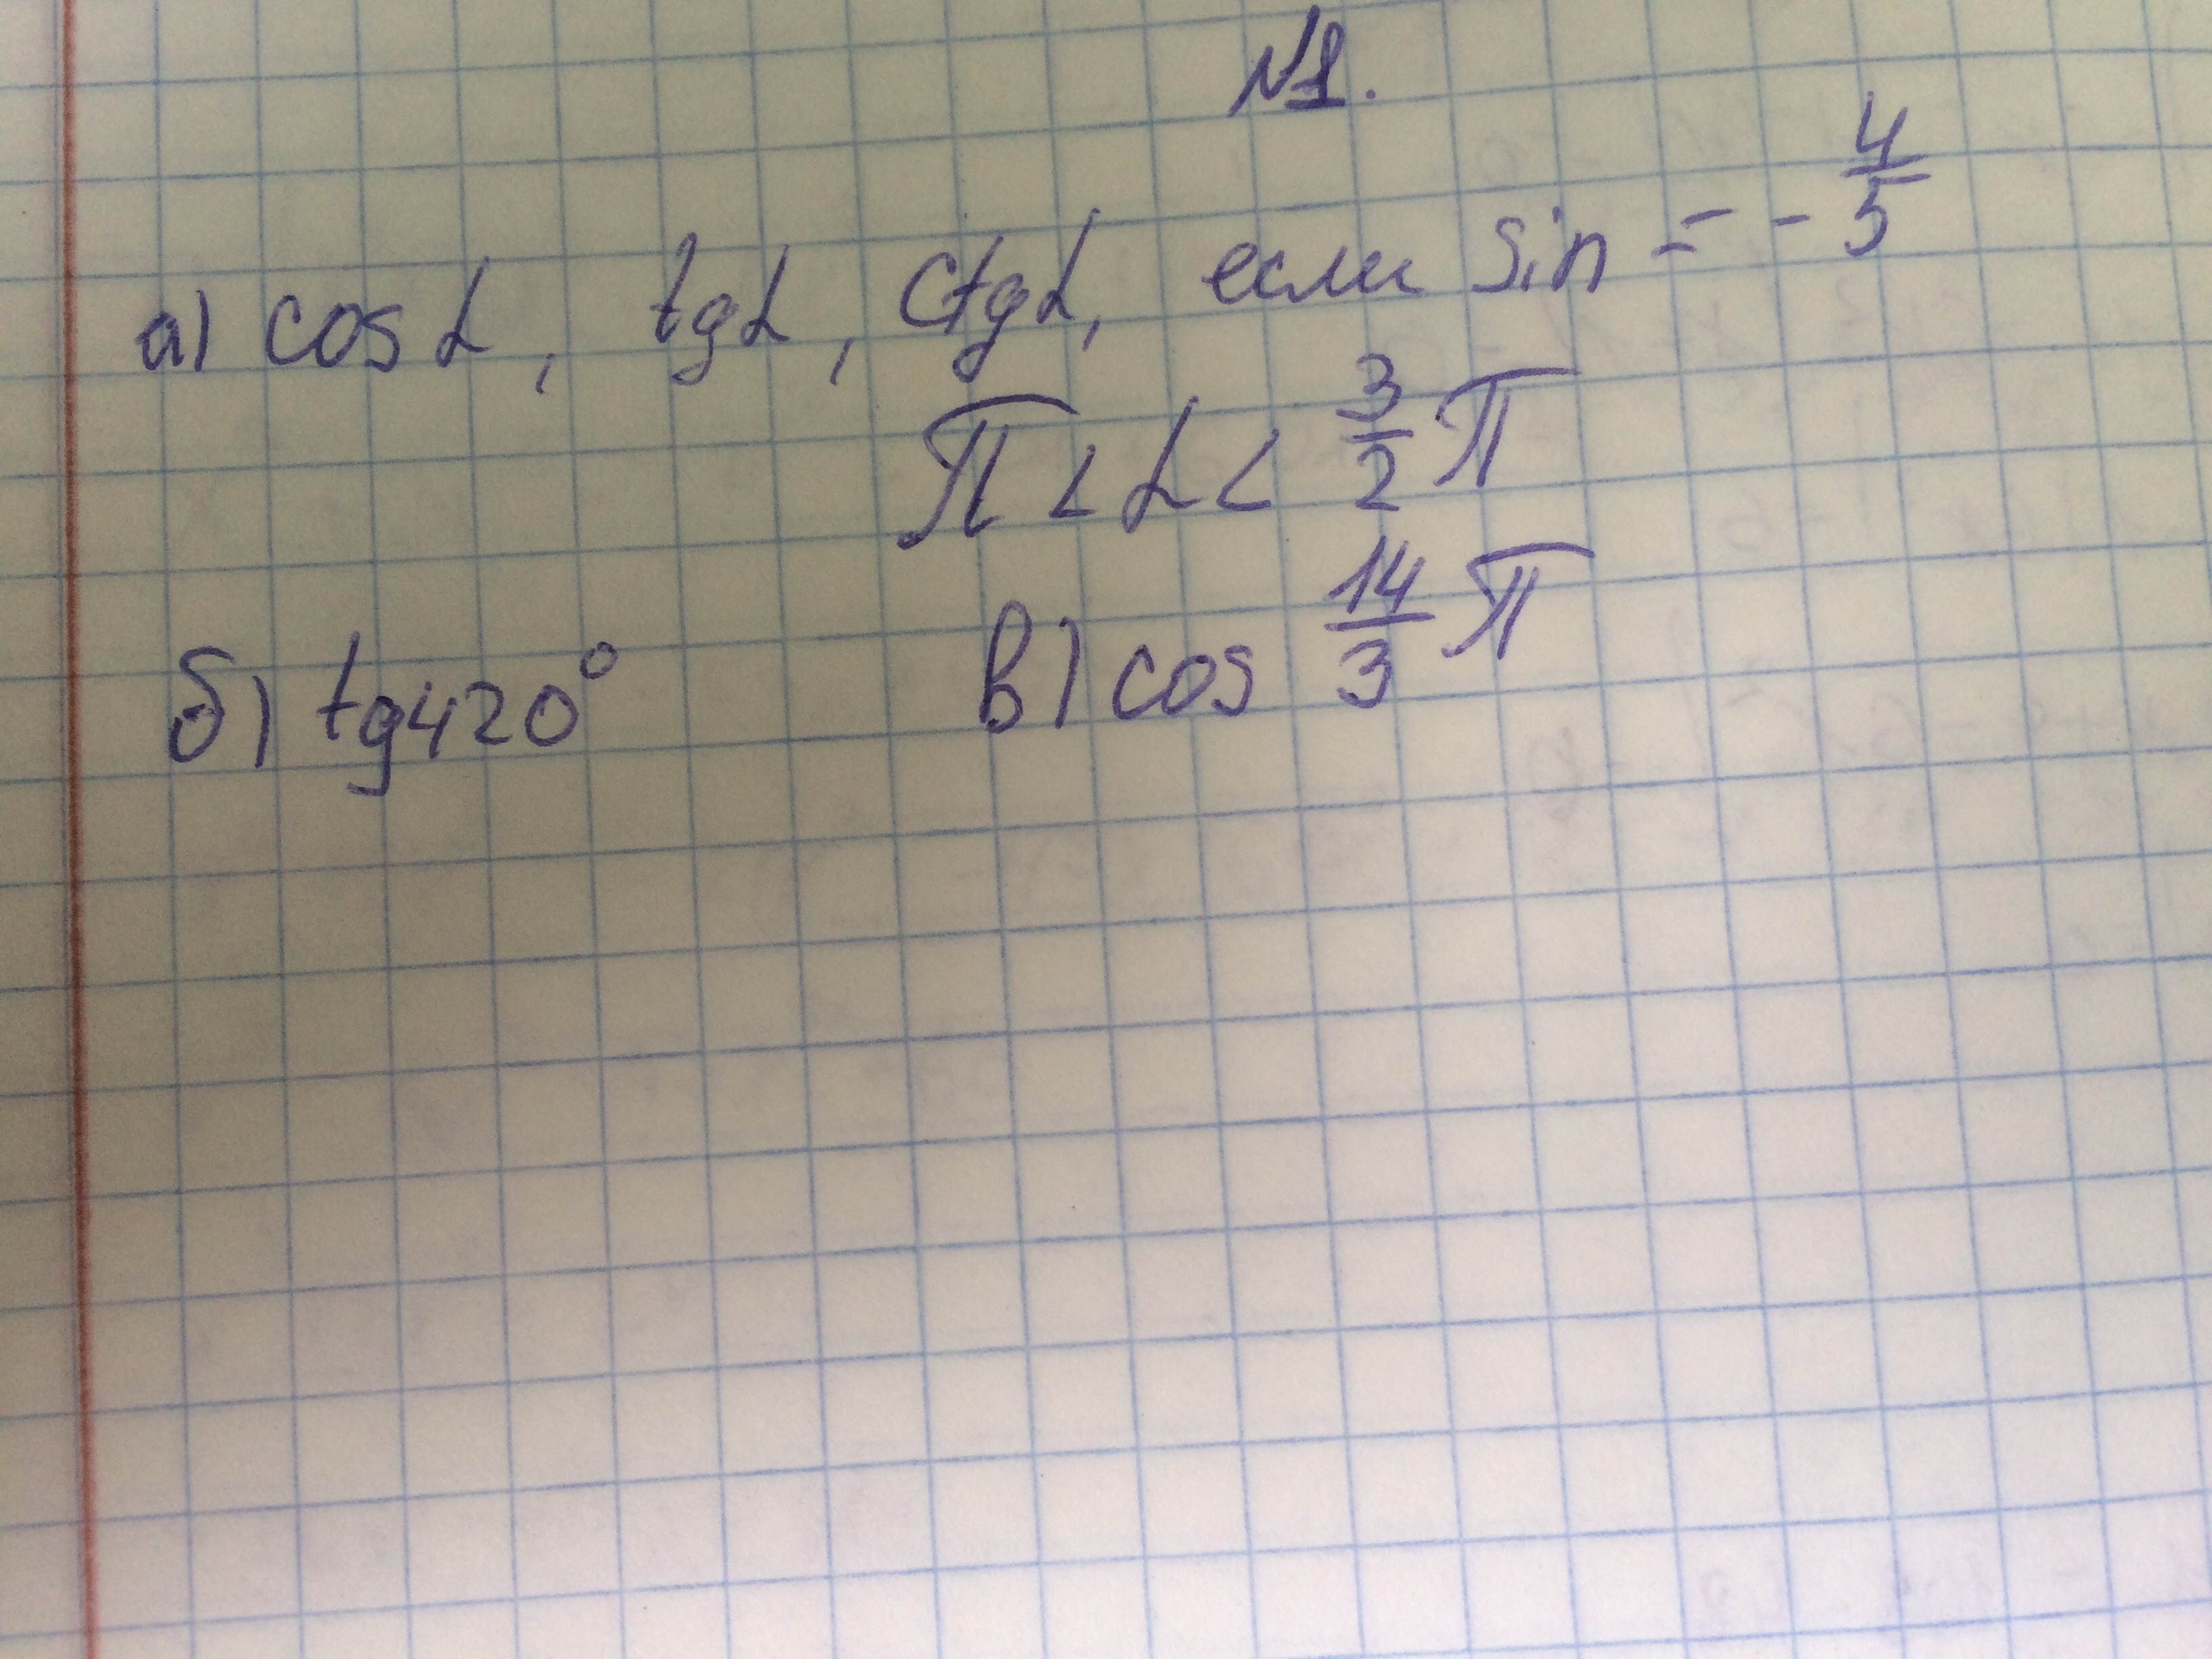 №1.
а) cos α, tg α, ctg α, если sin = - 4/5
π < α < 3/2 π
б) tg 420° в) cos 14/3 π